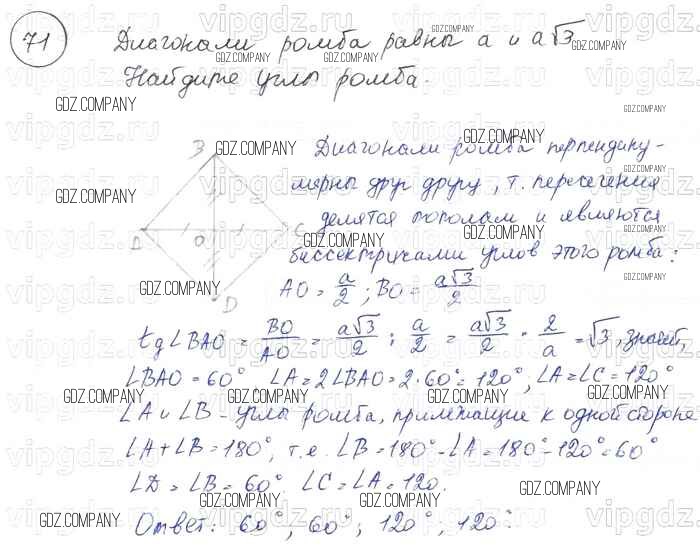 71 Диагонали ромба равны a и a√3
Найдите углы ромба.
Диагонали ромба перпендику-
лярны друг другу, т. пересечения
делятся пополам и являются
биссектрисами углов этого ромба:
B
D O C
D
AO = a/2 ; BO = a√3/2
tg∠BAO = BO/AO = a√3/2 : a/2 = a√3/2 · 2/a = √3, значит,
∠BAO = 60°, ∠A = 2∠BAO = 2·60° = 120°, ∠A = ∠C = 120°
∠A и ∠B - углы ромба, прилежащие к одной стороне
∠A + ∠B = 180°, т.е. ∠B = 180° - ∠A = 180° - 120° = 60°
∠D = ∠B = 60° ∠C = ∠A = 120.
Ответ: 60°; 60°; 120°; 120°.
GDZ.COMPANY
vipgdz.ru